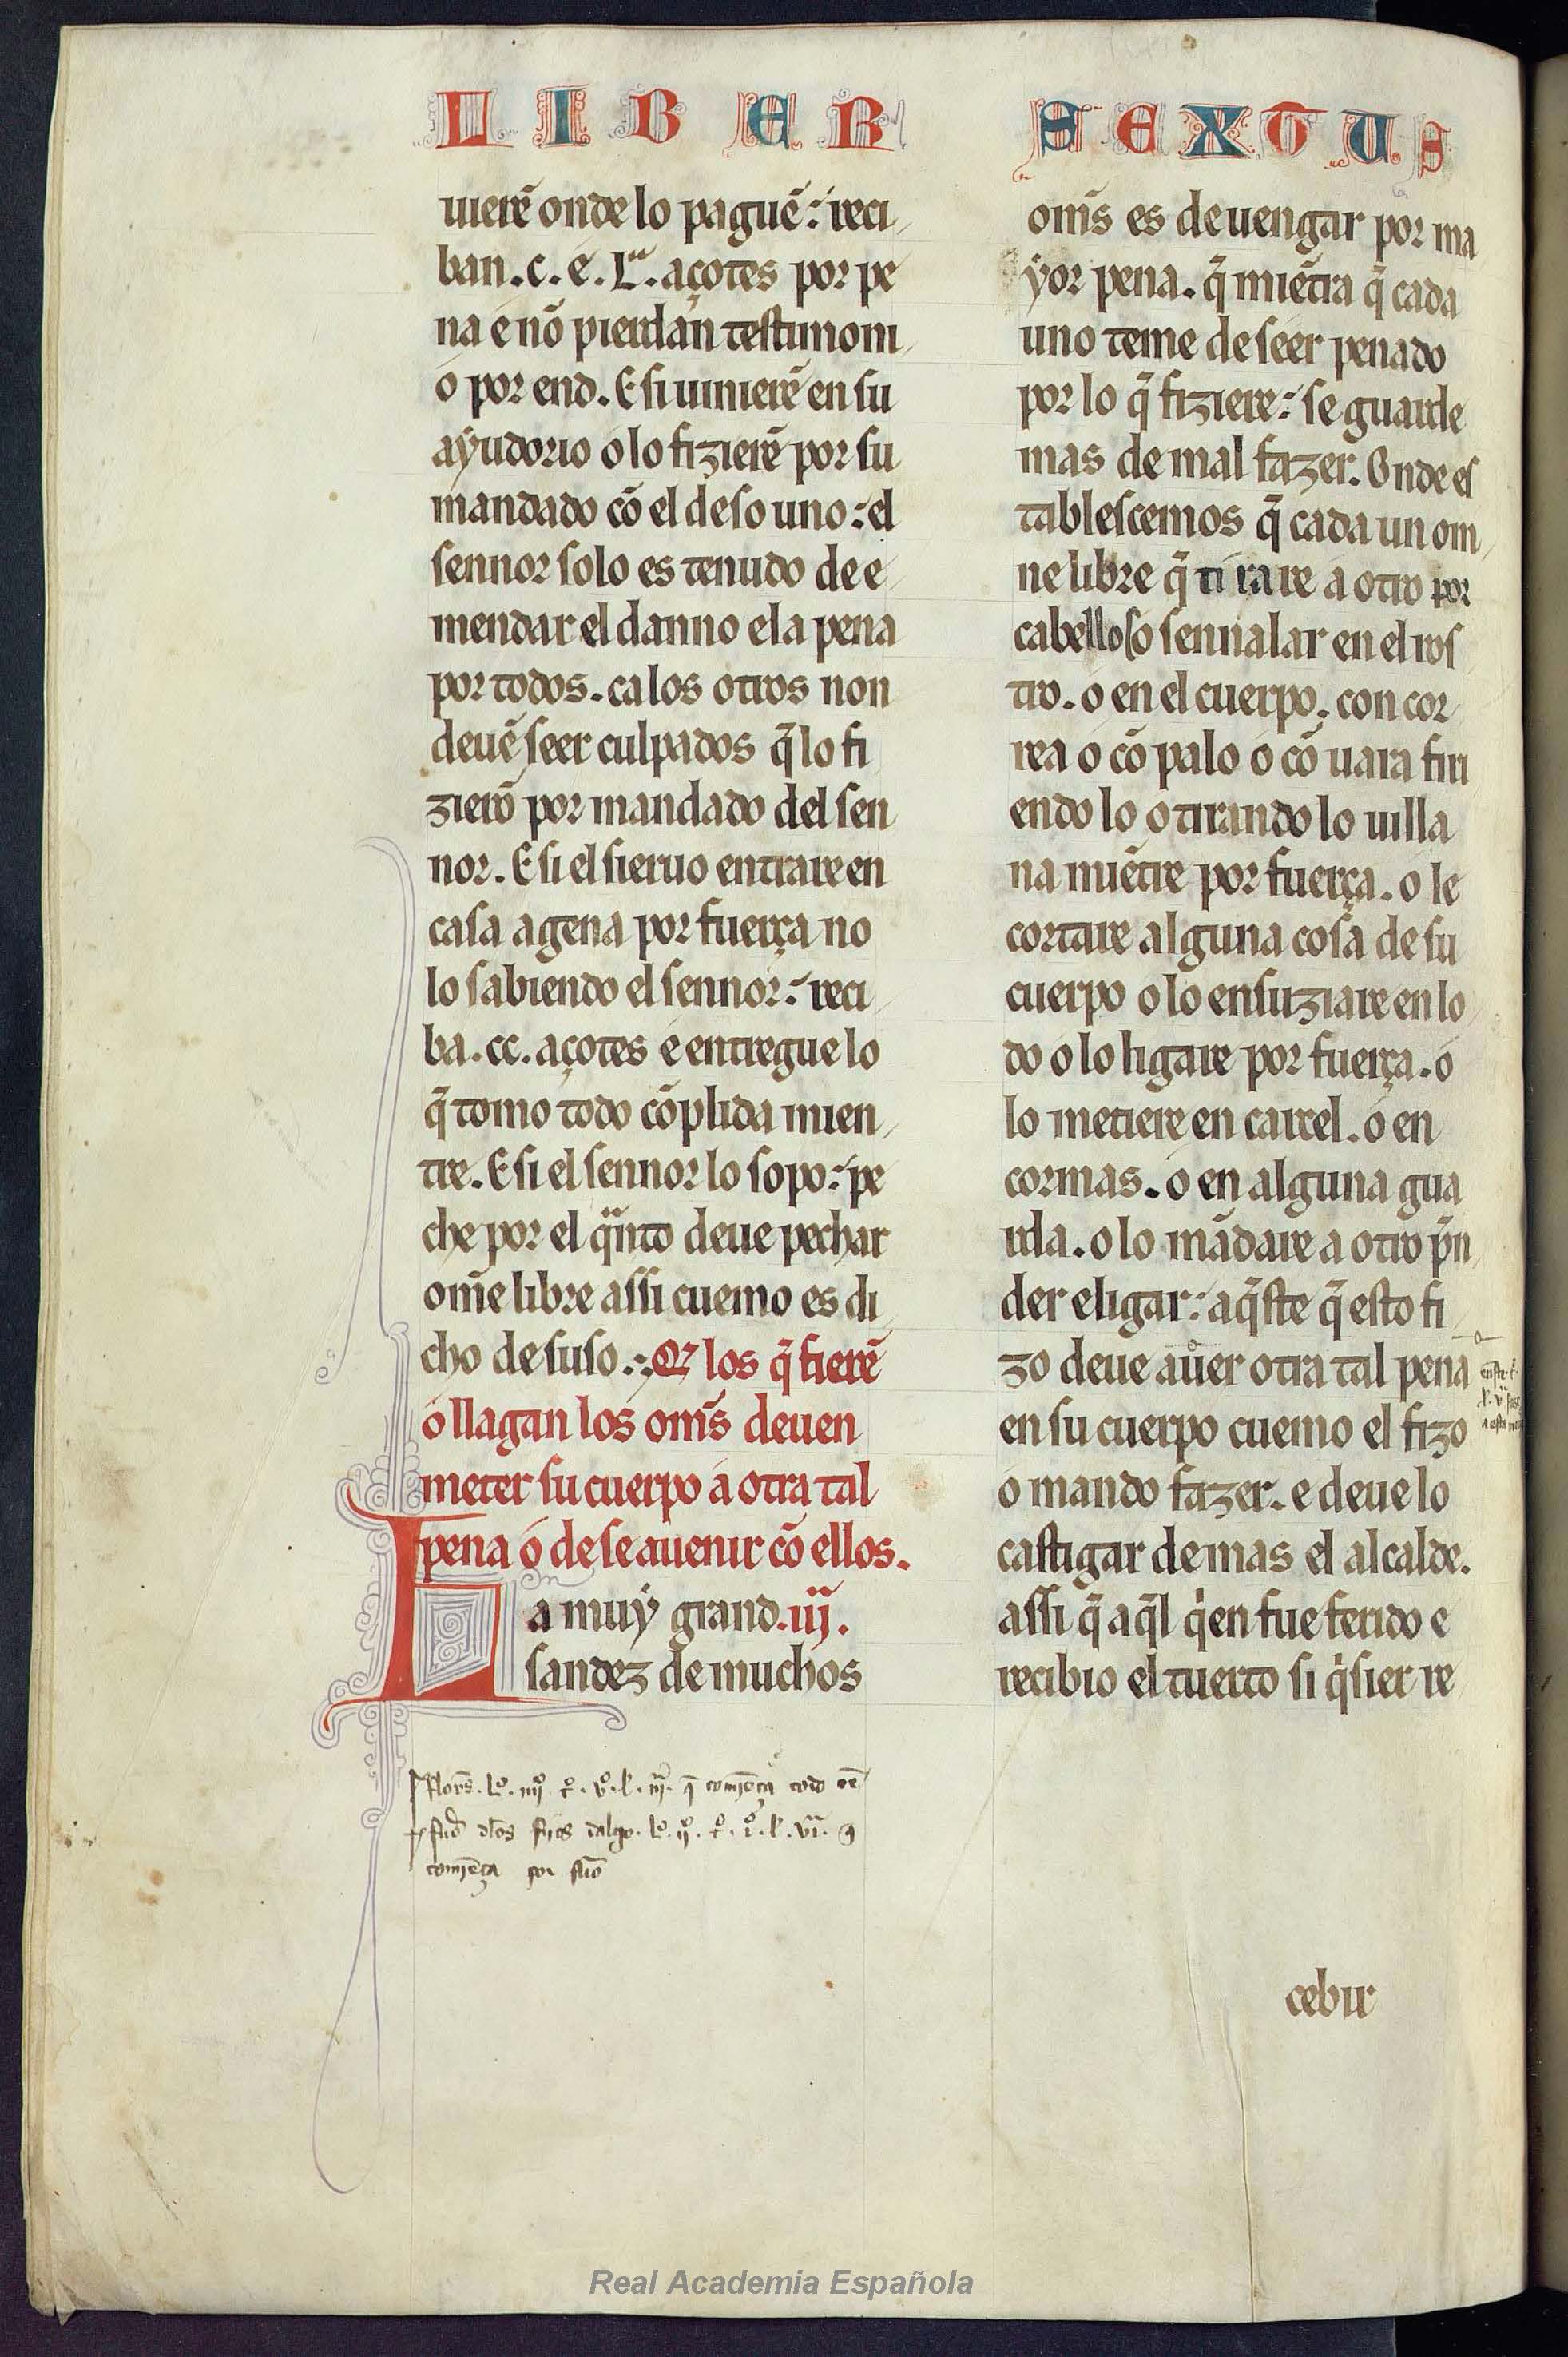 LIBER SEXTUS
uierẽ onde lo paguẽ: reci
ban.c.e.Lᵃ.açotes por pe
na e nõ pierdan testimoni
o por end. E si uinierẽ en su
ayudorio o lo fizierẽ por su
mandado cõ el deso uno: el
sennor solo es tenudo de e
mendar el danno e la pena
por todos. ca los otros non
deuẽ seer culpados q̃ lo fi
zierõ por mandado del sen
nor. E si el sieruo entrare en
casa agena por fuerça no
lo sabiendo el sennor: reci
ba.cc.açotes e entregue lo
q̃ tomo todo cõplida mien
tre. E si el sennor lo sopo: pe
che por el q̃nto deue pechar
om̃e libre assi cuemo es di
cho de suso. Q̃ los q̃ fierẽ
o llagan los om̃s deuen
meter su cuerpo a otra tal
pena o de se auenir cõ ellos.
La muy grand.iij.
sandez de muchos
om̃s es de uengar por ma
yor pena. q̃ miẽtra q̃ cada
uno teme de seer penado
por lo q̃ fiziere: se guarde
mas de mal fazer. Onde es
tablescemos q̃ cada un om
ne libre q̃ tirare a otro por
cabellos o sennalar en el ros
tro. o en el cuerpo. con cor
rea o cõ palo o cõ uara firi
endo lo o tirando lo uilla
na miẽtre por fuerça. o le
cortare alguna cosa de su
cuerpo o lo ensuziare en lo
do o lo ligare por fuerça. o
lo metiere en carcel. o en
cormas. o en alguna gua
rda. o lo mãdare a otro p̃n
der e ligar: aq̃ste q̃ esto fi
zo deue auer otra tal pena
en su cuerpo cuemo el fizo
o mando fazer. e deue lo
castigar de mas el alcalde.
assi q̃ aq̃l q̃en fue ferido e
recibio el tuerto si q̃sier re
comẽça por
cebir
Real Academia Española